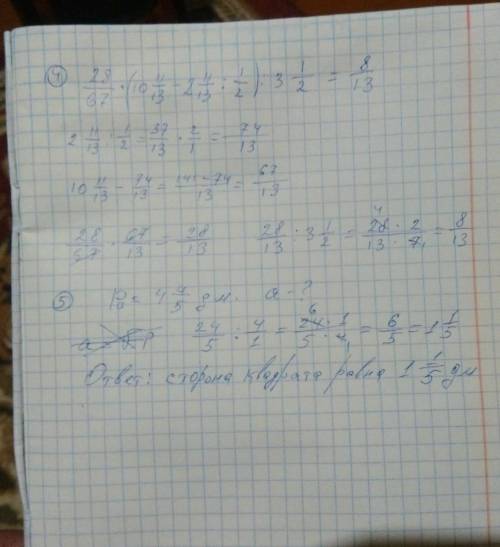 ④ 28/67 · (10 11/13 - 2 11/13 : 1/2) : 3 1/2 = 8/13
2 11/13 : 1/2 = 37/13 · 2/1 = 74/13
10 11/13 - 74/13 = (141 - 74)/13 = 67/13
28/67 · 67/13 = 28/13 28/13 : 3 1/2 = (28 · 2)/(13 · 7) = 8/13
⑤ P = 4 4/5 дм. a - ?
24/5 : 4/1 = (24 · 1)/(5 · 4) = 6/5 = 1 1/5
Ответ: сторона квадрата равна 1 1/5 дм